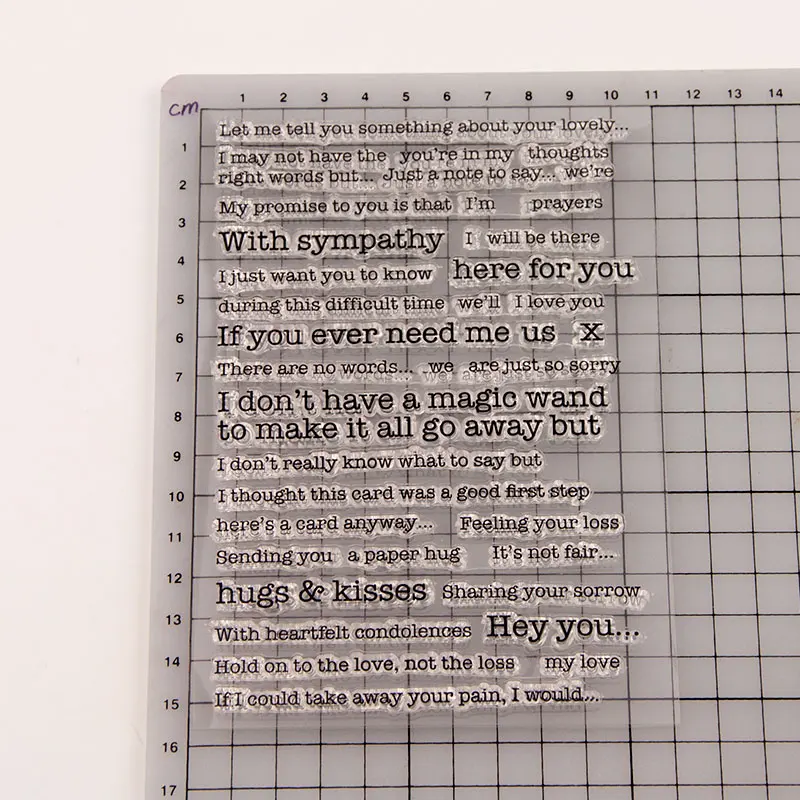 cm 1 2 3 4 5 6 7 8 9 10 11 12 13 14
Let me tell you something about your lovely...
1
I may not have the you're in my thoughts
right words but... Just a note to say... we're
2
My promise to you is that I'm prayers
3
With sympathy I will be there
4
I just want you to know here for you
5
during this difficult time we'll I love you
6 If you ever need me us x
There are no words... we are just so sorry
7
I don't have a magic wand
8
to make it all go away but
9 I don't really know what to say but
10 I thought this card was a good first step
11 here's a card anyway... Feeling your loss
Sending you a paper hug It's not fair...
12
hugs & kisses Sharing your sorrow
13
With heartfelt condolences Hey you...
14 Hold on to the love, not the loss my love
15 If I could take away your pain, I would...
16
17